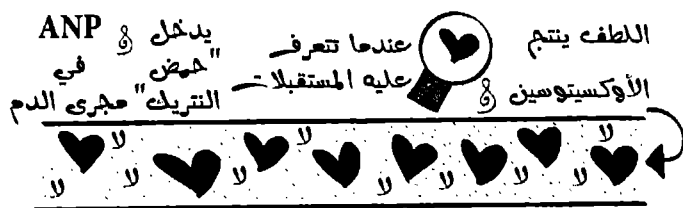 اللطف ينتج
الأوكسيتوسين و
عندما تتعرف
عليه المستقبلات
يدخل و ANP
"حمض في
النتريك" مجرى الدم
لا لا لا لا لا لا لا لا لا لا لا لا